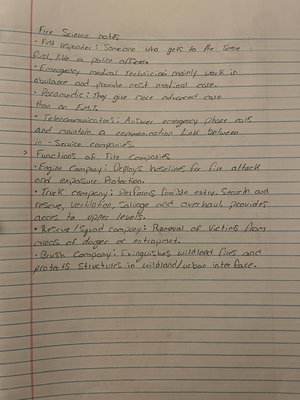 Fire Science notes
• First responder: Someone who gets to the scene
first, like a police officer.
• Emergency medical technician: mainly work in
abulance and provide most medical care.
• Paramedic: They give more advanced care
than an E.M.T.
• Telecommunicators: Answer emergency phone calls
and maintain a communication link between
in-service companies.
> Functions of Fire Companies
• Engine Company: Deploys hoselines for fire attack
and exposure protection.
• Truck company: Performs forcible entry, Search and
rescue, Ventilation, Salvage and overhaul, provides
acces to upper levels.
• Rescue/Squad company: Removal of Victims from
areas of danger or entrapmet.
• Brush Company: Exinguishes wildland fires and
protects Structures in wildland/urban interface.